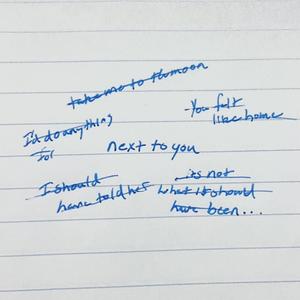 take me to the moon
You felt
like home
I'd do anything
for
next to you
I should
have told her
its not
what it should
have been...